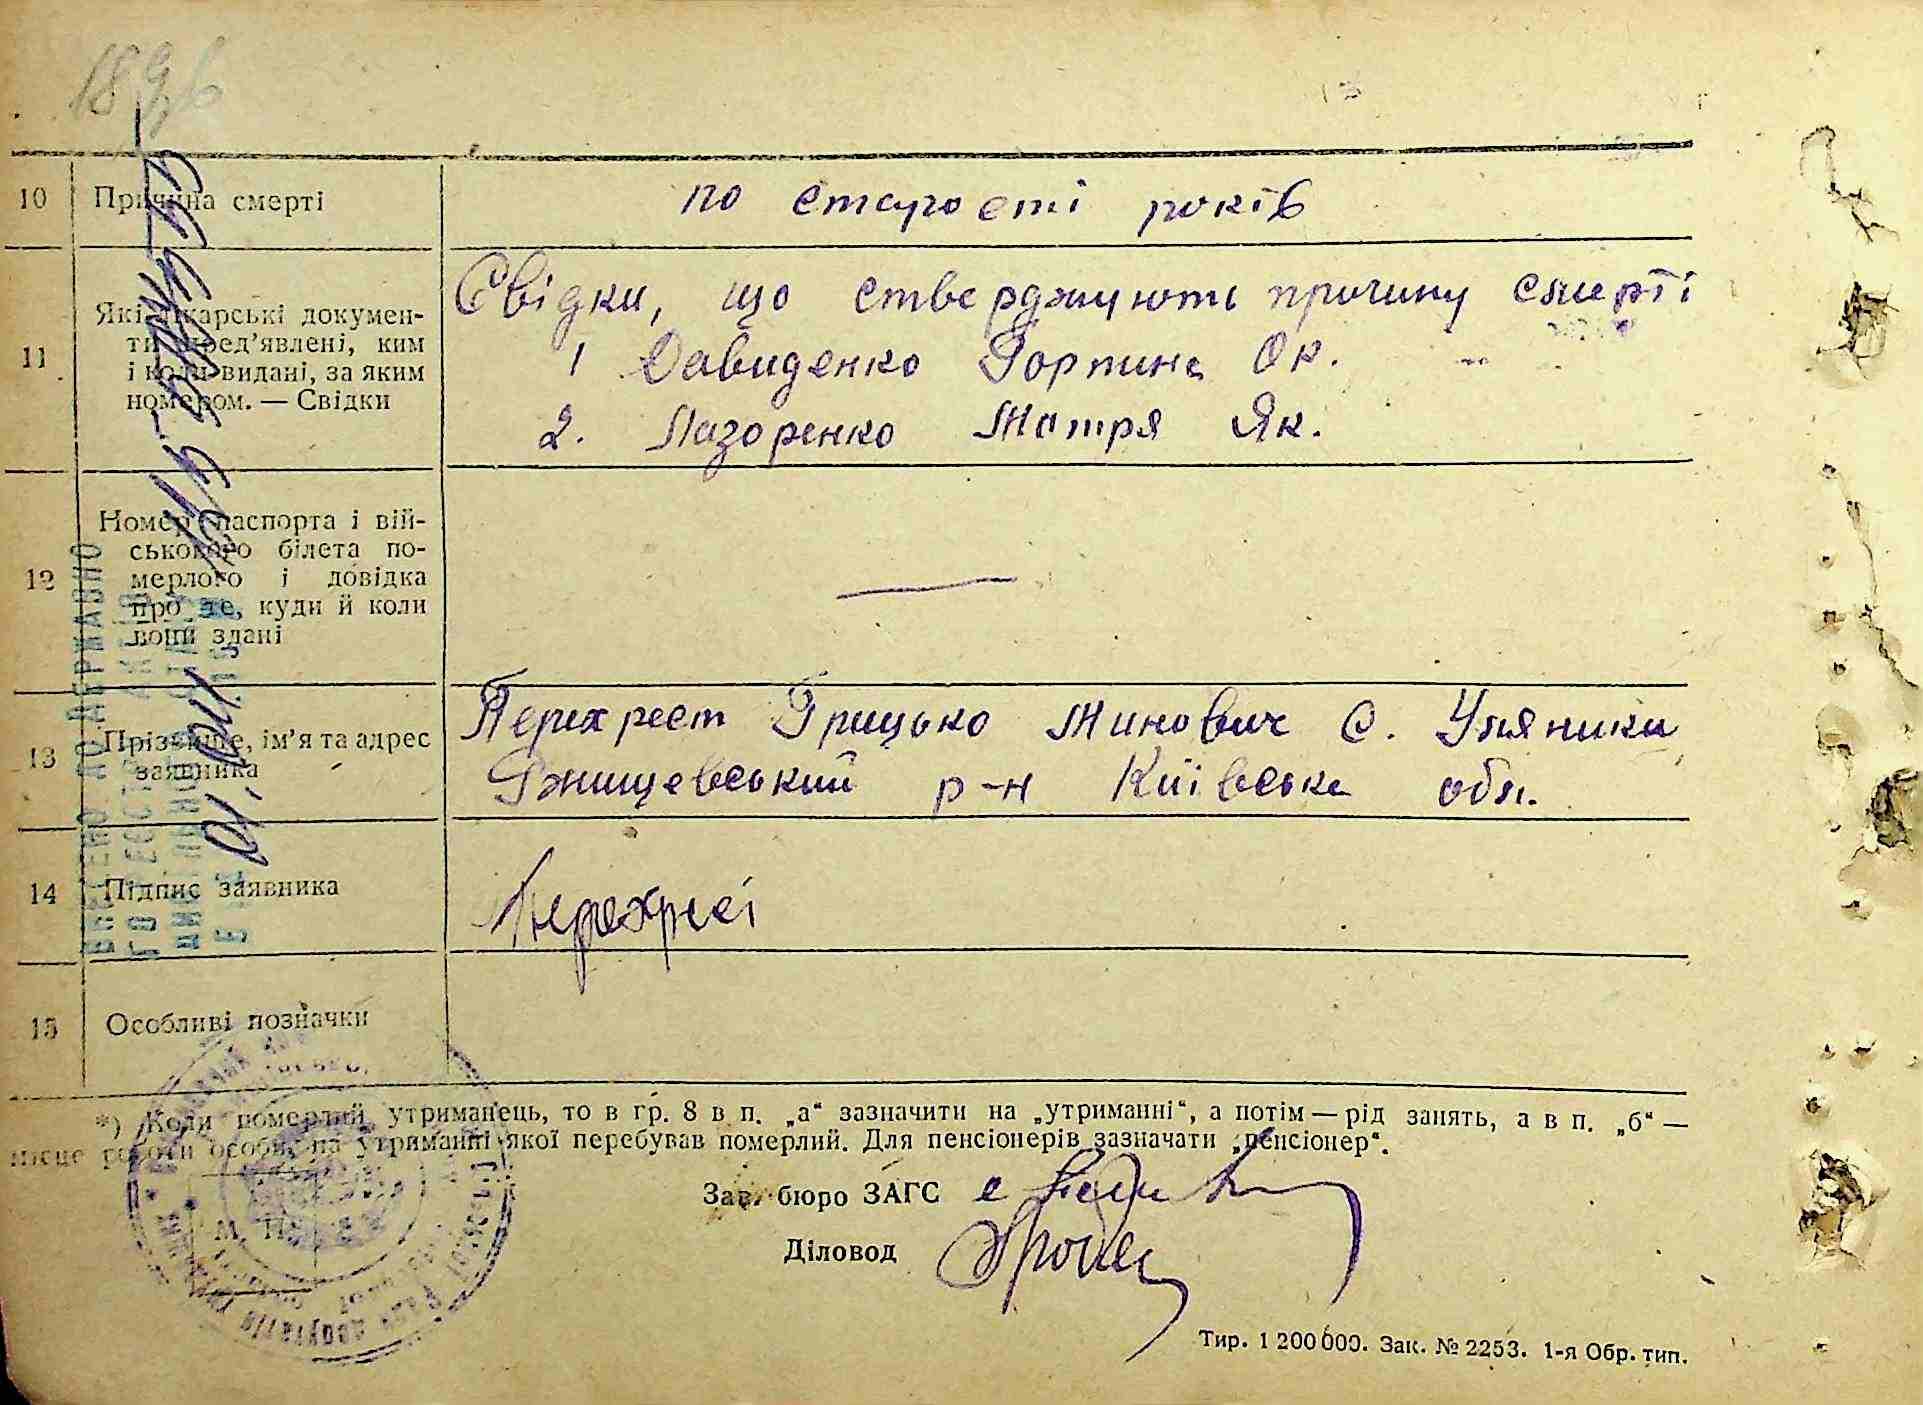 1896
10 Причина смерті
по старості років
11 Які лікарські докумен-
ти пред’явлені, ким
і коли видані, за яким
номером. — Свідки
Свідки, що стверджують причину смерті
1 Давиденко Горпина Ок.
2. Лазоренко Мотря Як.
12 Номер паспорта і вій-
ськового білета по-
мерлого і довідка
про те, куди й коли
вони здані
—
13 Прізвище, ім’я та адрес
заявника
Перехрест Грицько Минович с. Уляники
Ржищевський р-н Київська обл.
14 Підпис заявника
Перехрест
15 Особливі позначки
*) Коли померлий утриманець, то в гр. 8 в п. „а“ зазначити на „утриманні“, а потім — рід занять, а в п. „б“ —
місце роботи особи, на утриманні якої перебував померлий. Для пенсіонерів зазначати „пенсіонер“.
М. П.
Зав. бюро ЗАГС
Діловод
Тир. 1 200 000. Зак. № 2253. 1-я Обр. тип.